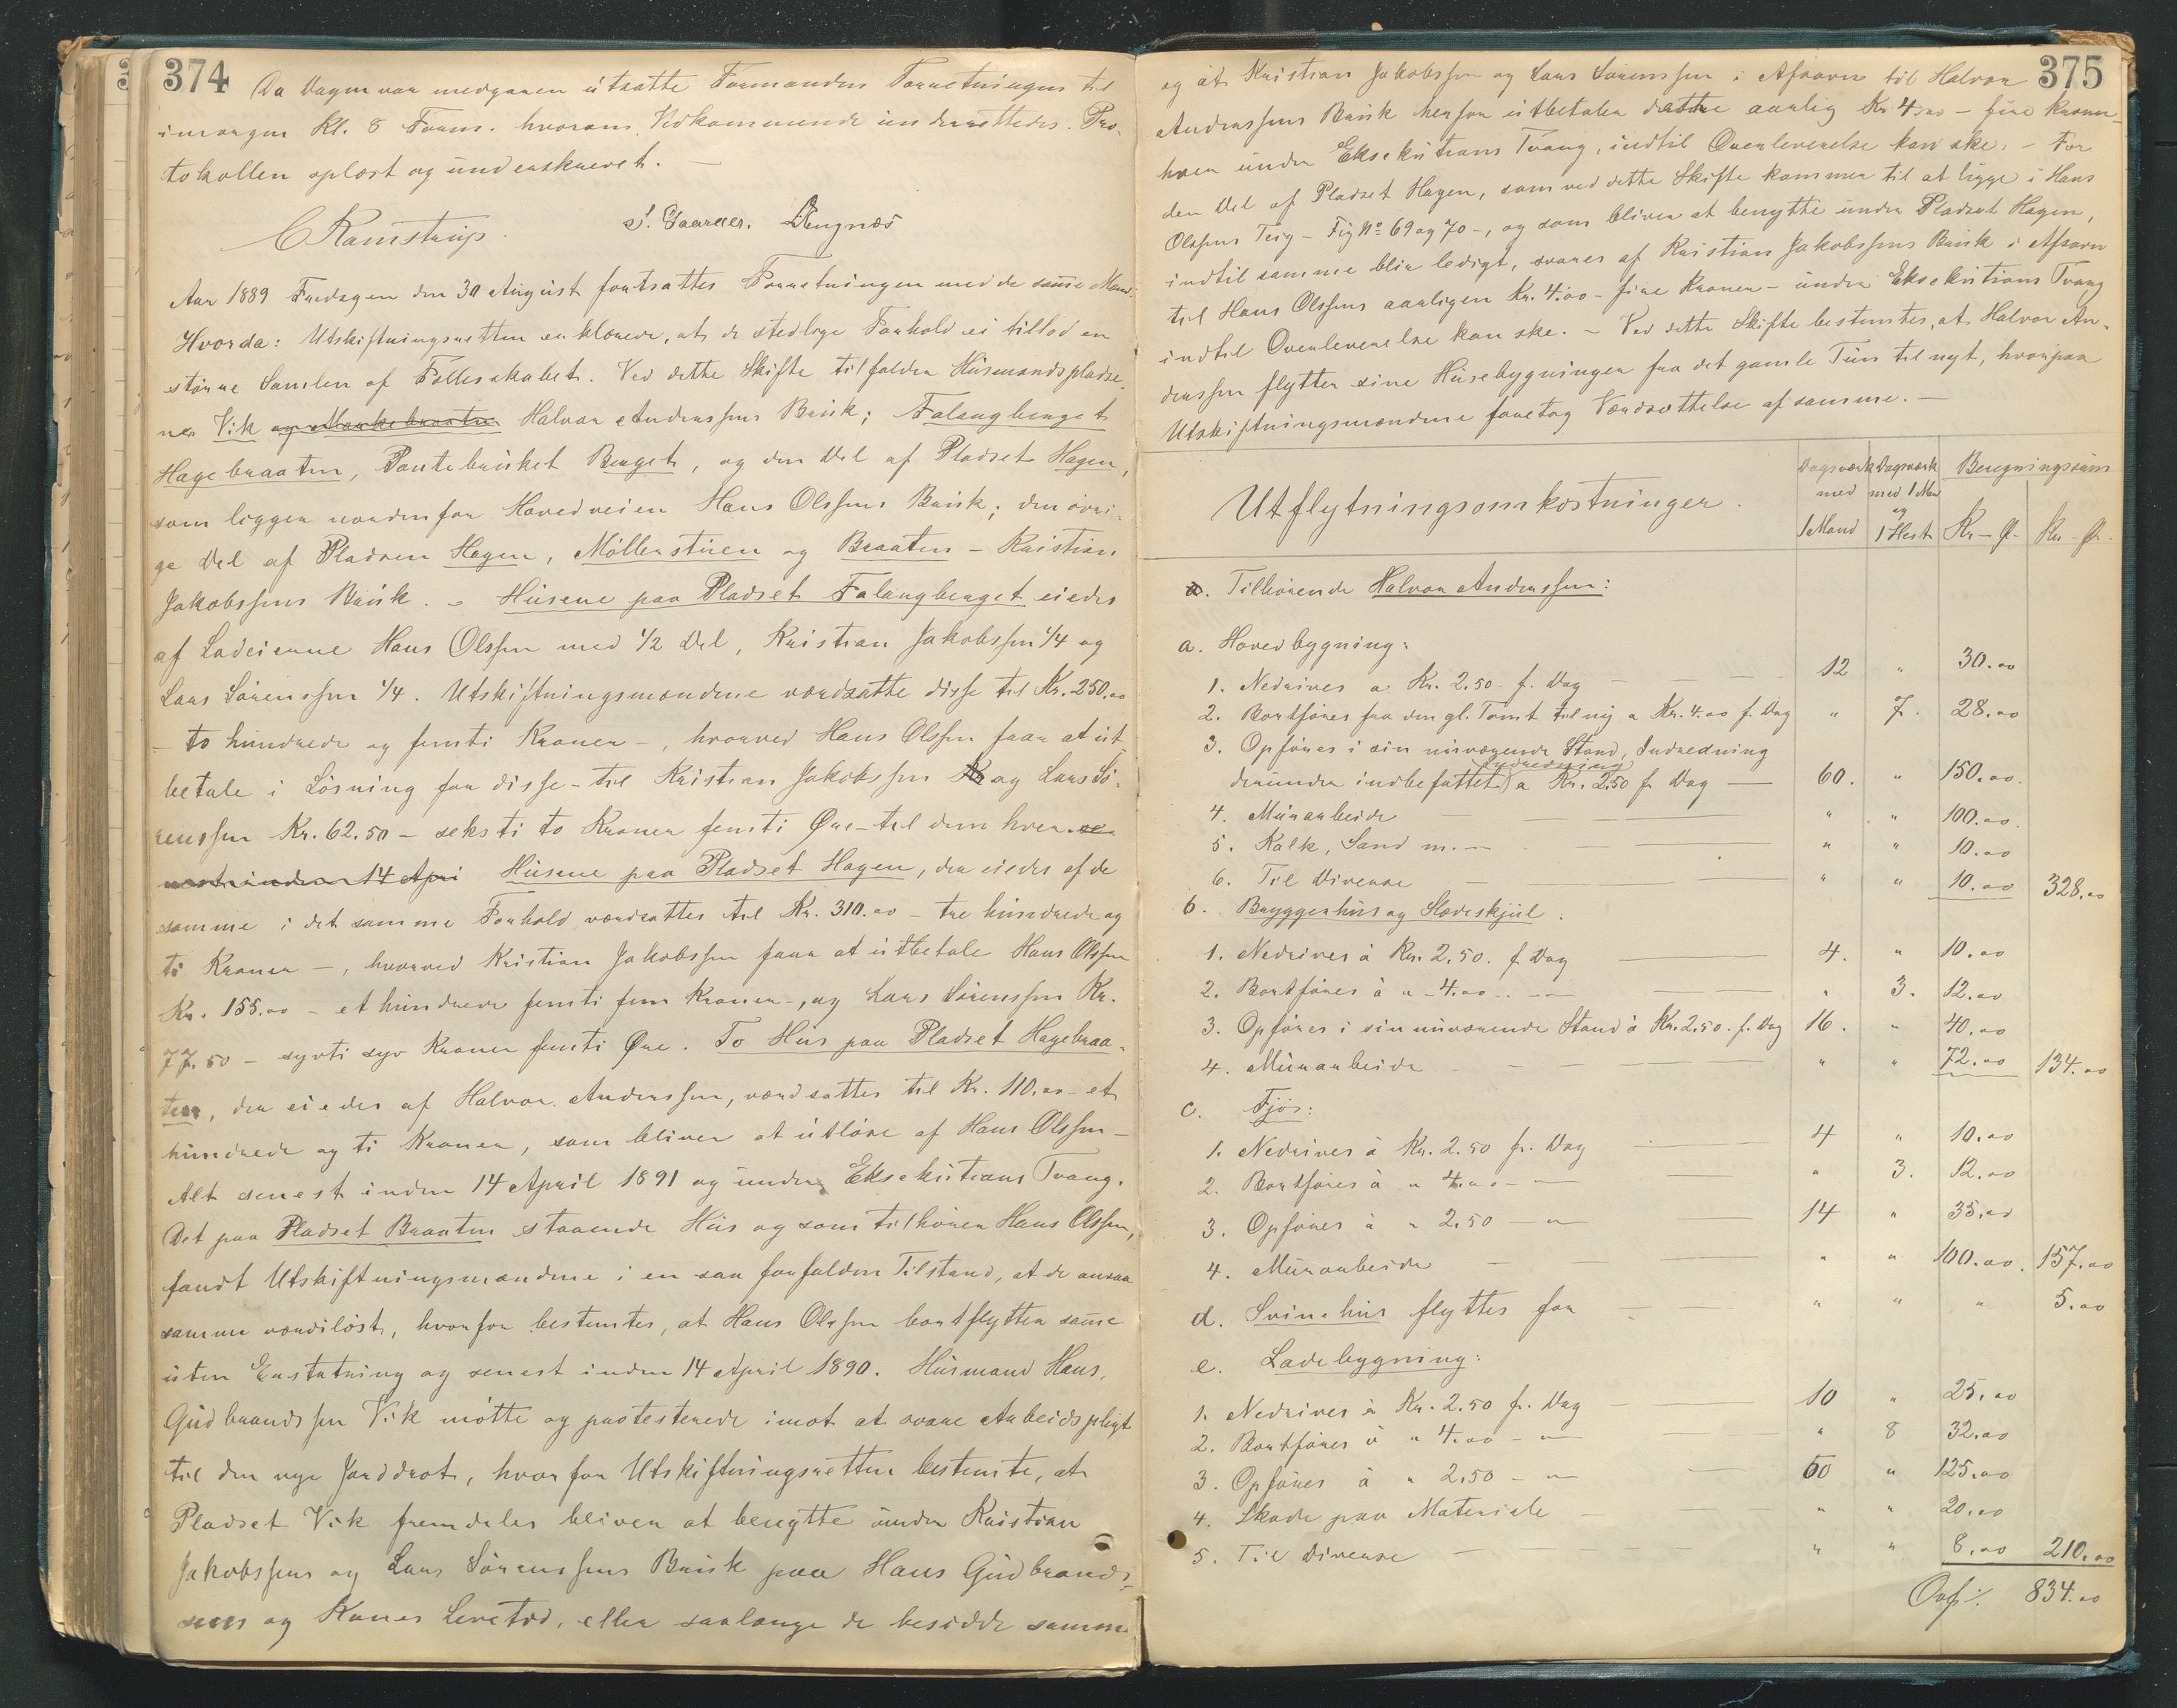 374
Da Dagen var medgaaen utsatte Formanden Forretningen til
imorgen Kl. 8 Form. hvorom Vedkommende underrettedes. Pro-
tokollen oplæst og underskrevet. —
C Ramstrup. S. Gaarder. Dengnæs
Aar 1889 Fredagen den 30 August fortsattes Forretningen med de same Mænd.
Hvorda: Utskiftningsretten erklærede, at de stedlige Forhold ei tillod en
större Samlen af Fællesskabet. Ved dette Skifte tilfalder Husmandspladse-
ne Vik og Halvor Andersens Bruk; Falangberget
Hagebraaten, Pontebrüket Berget, og den Del af Pladset Hagen,
som ligger nordenfor Hovedveien Hans Olssens Bruk; den övri-
ge Del af Pladsen Hagen, Möllerstuen og Braaten – Kristian
Jakobssens Bruk. – Husene paa Pladset Falangberget eiedes
af Lodeierne Hans Olssen med 1/2 Del, Kristian Jakobssen 1/4 og
Lars Sörenssen 1/4. Utskiftningsmændene værdsatte disse til Kr. 250.00
– to hundrede og femti Kroner –, hvorved Hans Olssen faar at ut-
betale i Lösning for disse – til Kristian Jakobssen og Lars Sö-
renssen Kr. 62.50 – seksti to Kroner femti Öre – til dem hver.
14 Apri Husene paa Pladset Hagen, der eiedes af de
samme i det samme Forhold værdsattes til Kr. 310.00 – tre hundrede og
ti Kroner –, hvorved Kristian Jakobssen faar at utbetale Hans Olssen
Kr. 155.00 – et hundrede femti fem Kroner –, og Lars Sörenssen Kr.
77.50 – sytti syv Kroner femti Öre. To Hus paa Pladset Hagebraa-
ten, der eiedes af Halvor Anderssen, værdsattes til Kr. 110.00 – et
hundrede og ti Kroner, som bliver at utlöse af Hans Olssen –
Alt senest inden 14 April 1891 og under Eksekutions Tvang.
Det paa Pladset Braaten staaende Hus og som tilhörer Hans Olssen,
fandt Utskiftningsmændene i en saa forfalden Tilstand, at de ansaa
samme værdilöst, hvorfor bestemtes, at Hans Olssen bortflytter same
uten Erstatning og senest inden 14 April 1890. Husmand Hans
Gudbrandssen Vik mötte og protesterede imot at svare Arbeidspligt
til den nye Jorddrot, hvorfor Utskiftningsretten bestemte, at
Pladset Vik fremdeles bliver at benytte under Kristian
Jakobssens og Lars Sörenssens Bruk paa Hans Gudbrands-
sens og Kones Levetid, eller saalænge de besidde samme
375
og at Kristian Jakobssen og Lars Sörenssen i Afsavn til Halvor
Anderssens Bruk herfor utbetaler dette aarlig Kr 4.00 – fire Kroner –
hver under Eksekutions Tvang, indtil Overleverelse kan ske. – For
den Del af Pladset Hagen, som ved dette Skifte kommer til at ligge i Hans
Olssens Teig – Fig No 69 og 70 –, og som bliver at benytte under Pladset Hagen,
indtil samme blir ledigt, svares af Kristian Jakobssens Bruk i Afsavn
til Hans Olssens aarligen Kr. 4.00 – fire Kroner – under Eksekutions Tvang
indtil Overleverelse kan ske. – Ved dette Skifte bestemtes, at Halvor An-
derssen flytter sine Husebygninger fra det gamle Tun til nyt, hvorpaa
Utskiftningsmændene foretog Værdsættelse af samme. –
Utflytningsomkostninger.
Dagsværk med 1 Mand
Dagsværk med 1 Man og 1 Hest
Beregningssum
Kr – Ö. Kr – Ö.
Tilhörende Halvor Anderssen:
a. Hovedbygning:
1. Nedrives a Kr. 2.50 f. Dag — 12 " 30.00
2. Bortföres fra den gl. Tomt til ny a Kr. 4.00 f. Dag " 7. 28.00
3. Opföres i sin nuværende Stand, Indredning
Indredning
derunder indbefattet) a Kr. 2.50 f. Dag — 60. " 150.00.
4. Murarbeide — " " 100.00.
5. Kalk, Sand m. — " " 10.00
6. Til Diverse — " " 10.00 328.00
b. Bryggerhus og Slædeskjul.
1. Nedrives à Kr. 2.50. f. Dag — 4. " 10.00
2. Bortföres à " – 4.00 – " — " 3. 12.00
3. Opföres i sin nuværende Stand à Kr. 2.50. f. Dag 16. " 40.00
4. Murarbeide — " " 72.00 134.00
c. Fjös:
1. Nedrives à Kr. 2.50 fr. Dag — 4 " 10.00
2. Bortföres à " 4.00 – " — " 3. 12.00
3. Opföres à " 2.50 – " — 14 " 35.00
4. Murarbeide — " " 100.00. 157.00
d. Svinehus flyttes for — " " " 5.00
e. Ladebygning:
1. Nedrives à Kr. 2.50 fr. Dag — 10 " 25.00
2. Bortföres à " 4.00 – " — " 8 32.00
3. Opföres à " 2.50 – " — 50 " 125.00
4. Skade paa Materiale — " " 20.00
5. Til Diverse — " " 8.00 210.00
Ovf. 834.00